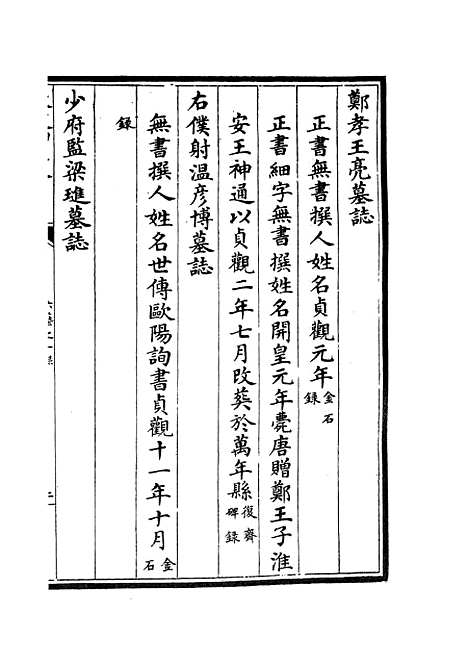 鄭孝王亮墓誌
正書無書撰人姓名貞觀元年金石錄
正書細字無書撰姓名開皇元年薨唐贈鄭王子淮
安王神通以貞觀二年七月改葬於萬年縣復齋碑錄
右僕射温彦博墓誌
無書撰人姓名世傳歐陽詢書貞觀十一年十月金石
錄
少府監梁璡墓誌